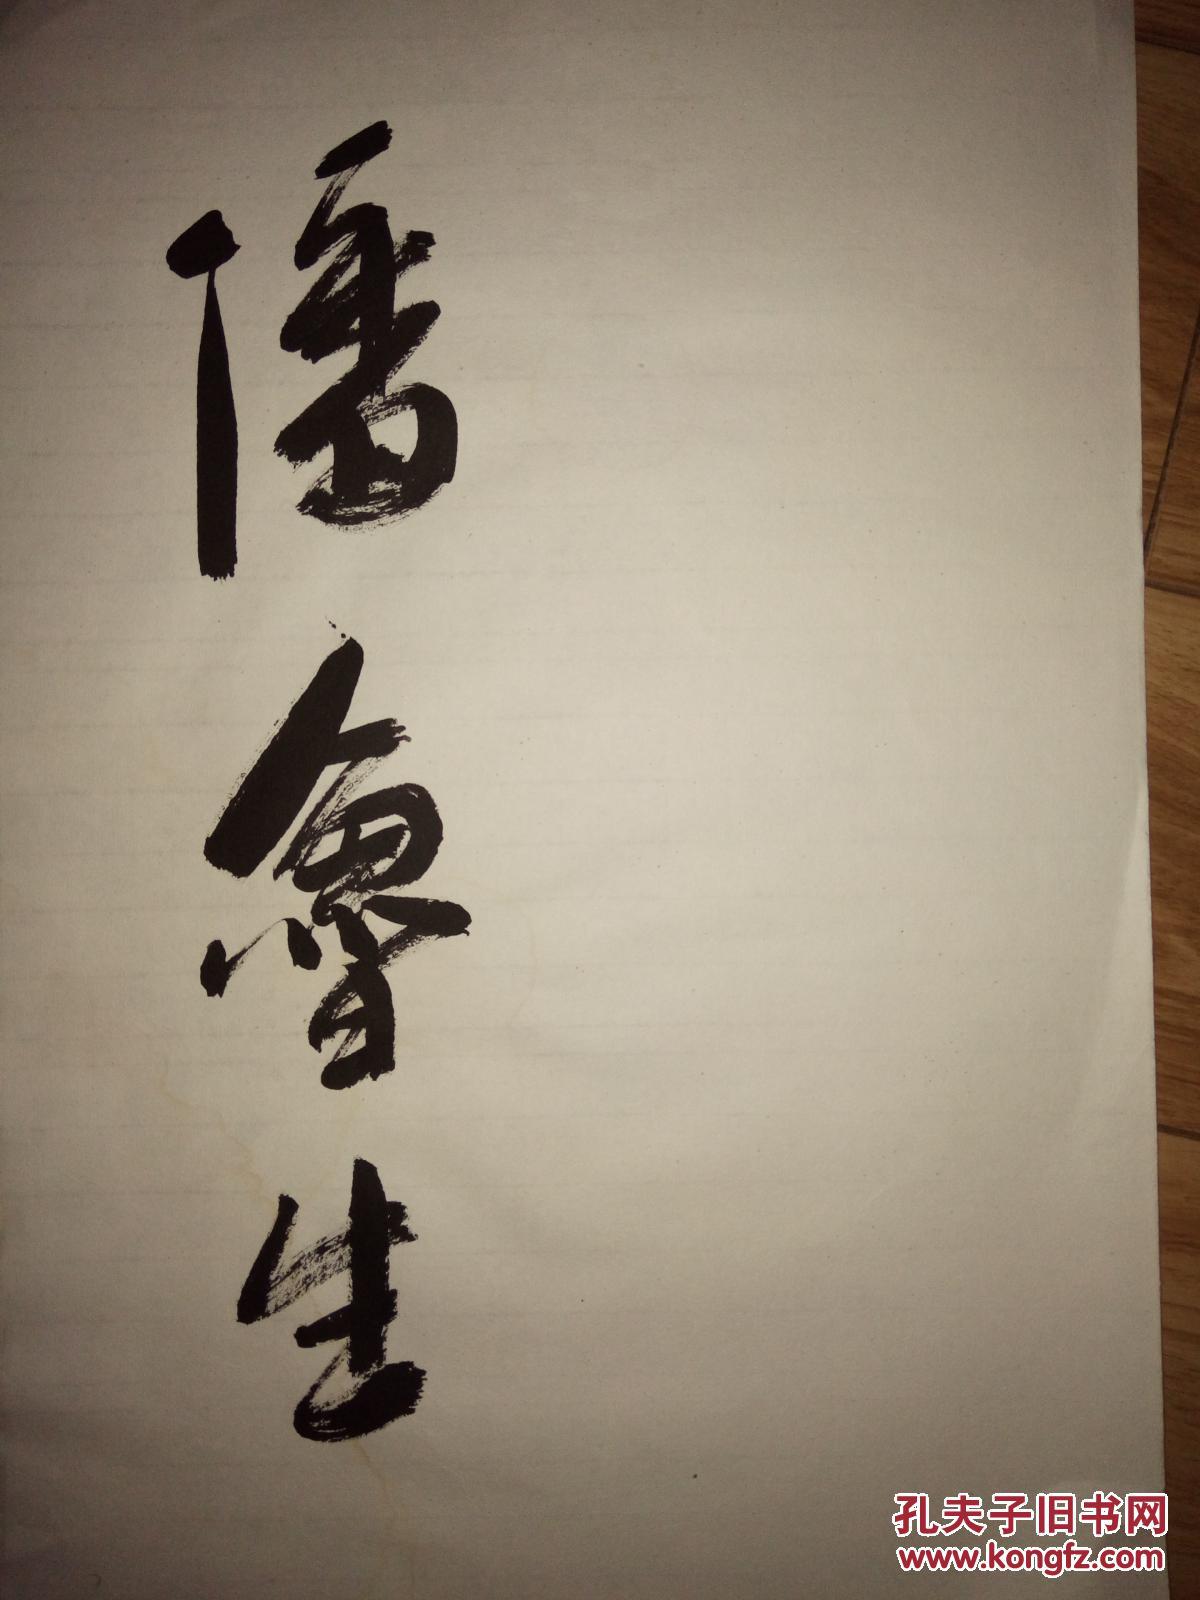 潘魯生
孔夫子旧书网
www.kongfz.com